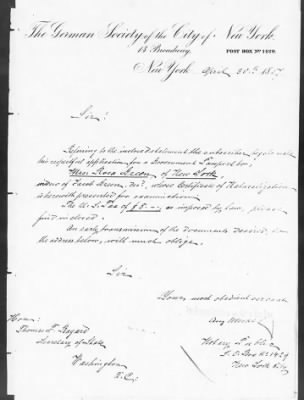 The German Society of the City of New York.
13 Broadway,
POST BOX No 1429.
New York, April 30th 1887
Sir!
Referring to the inclosed statement the subscriber begs to make
his respectful application for a Government Passport for:
Mrs. Rosa of New York
widow of Jacob dec'd, whose Certificate of Naturalization
is herewith presented for examination.
The U.S. Fee of $5.- as imposed by law, please
find inclosed.
An early transmission of the documents desired, to
the address below, will much oblige.
Sir
Yours most obedient servant
Notary Public
P.O. Box No 1429
New York City
Hon:
Thomas F. Bayard
Secretary of State
Washington
D.C.